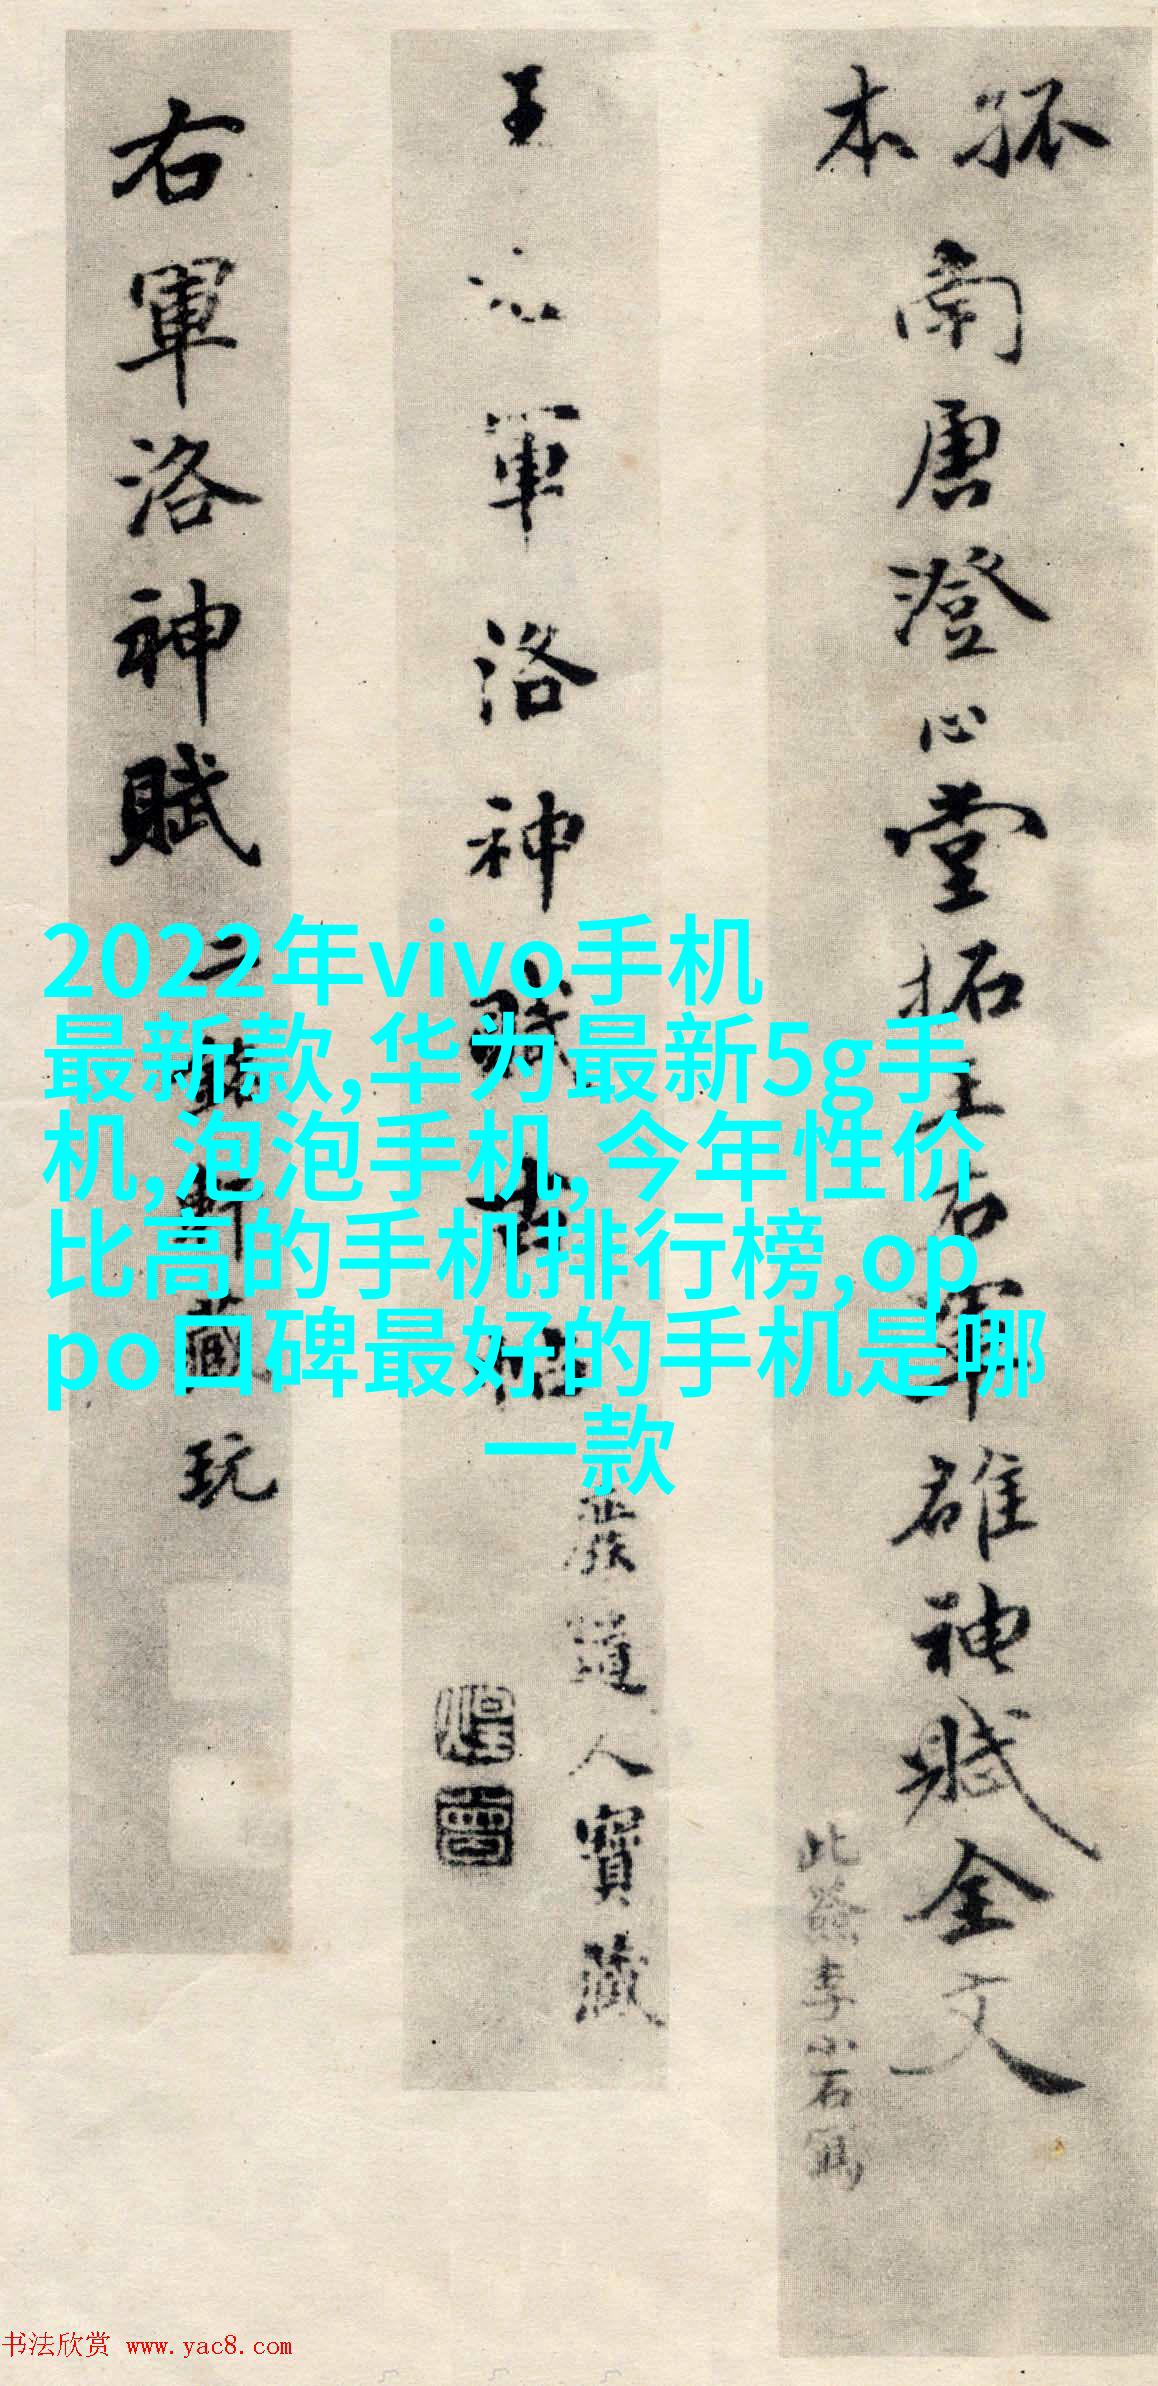 孤本
南唐澄心堂拓王右軍雒神賦全文
此籖李小石寫
王右軍洛神賦
農道人寶藏
右軍洛神賦
二銘軒藏玩
2022年vivo手机
最新款,华为最新5g手
机,泡泡手机, 今年性价
比高的手机排行榜,op
po口碑最好的手机是哪
一款
书法欣赏 www.yac8.com